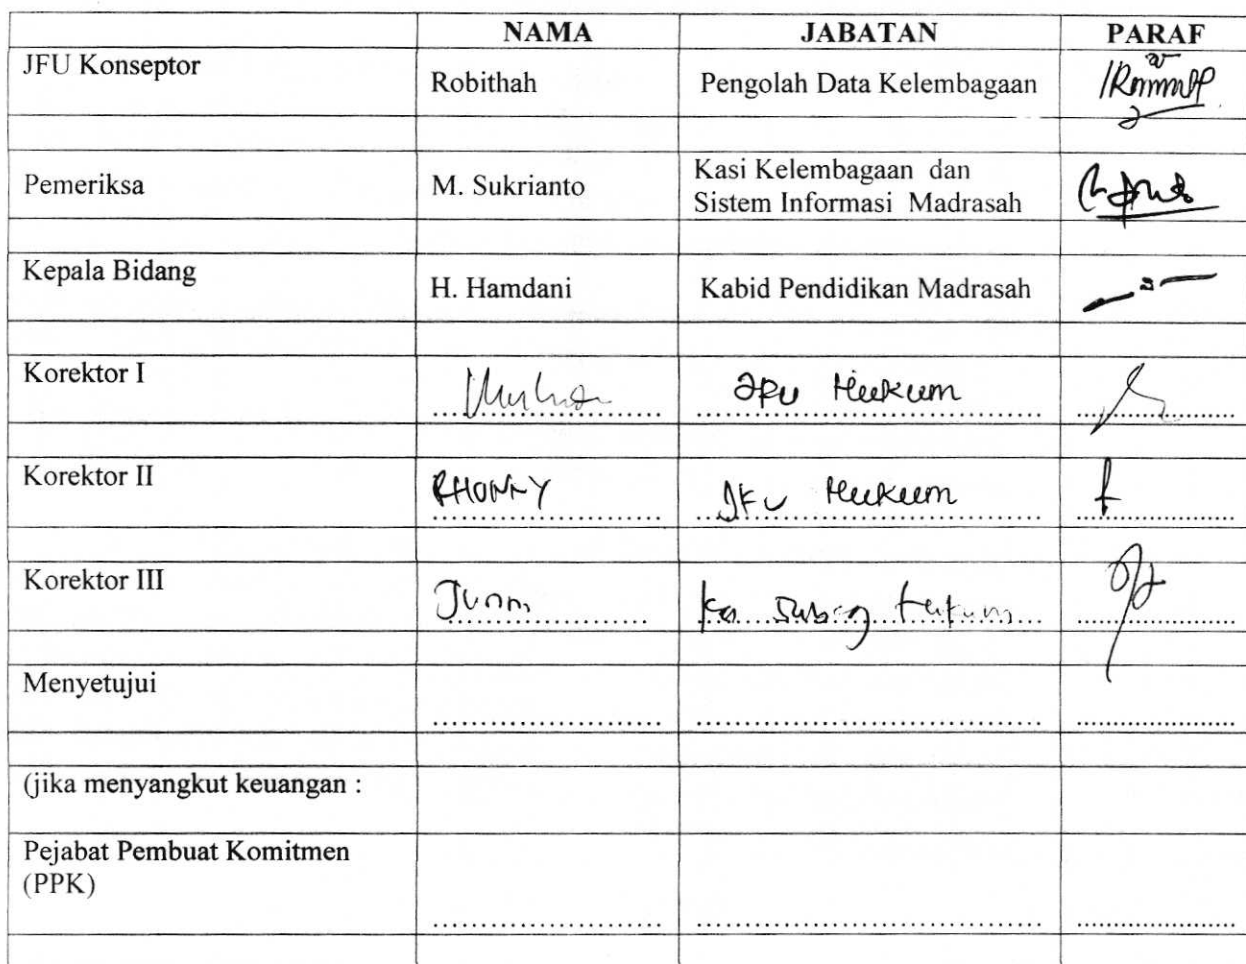 NAMA JABATAN PARAF
JFU Konseptor
Robithah Pengolah Data Kelembagaan
Pemeriksa M. Sukrianto Kasi Kelembagaan dan
Sistem Informasi Madrasah
Kepala Bidang
H. Hamdani Kabid Pendidikan Madrasah
Korektor I
JFU Hukum
Korektor II
RHONNY JFU Hukum
Korektor III
Ka Subag Hukum
Menyetujui
(jika menyangkut keuangan :
Pejabat Pembuat Komitmen
(PPK)